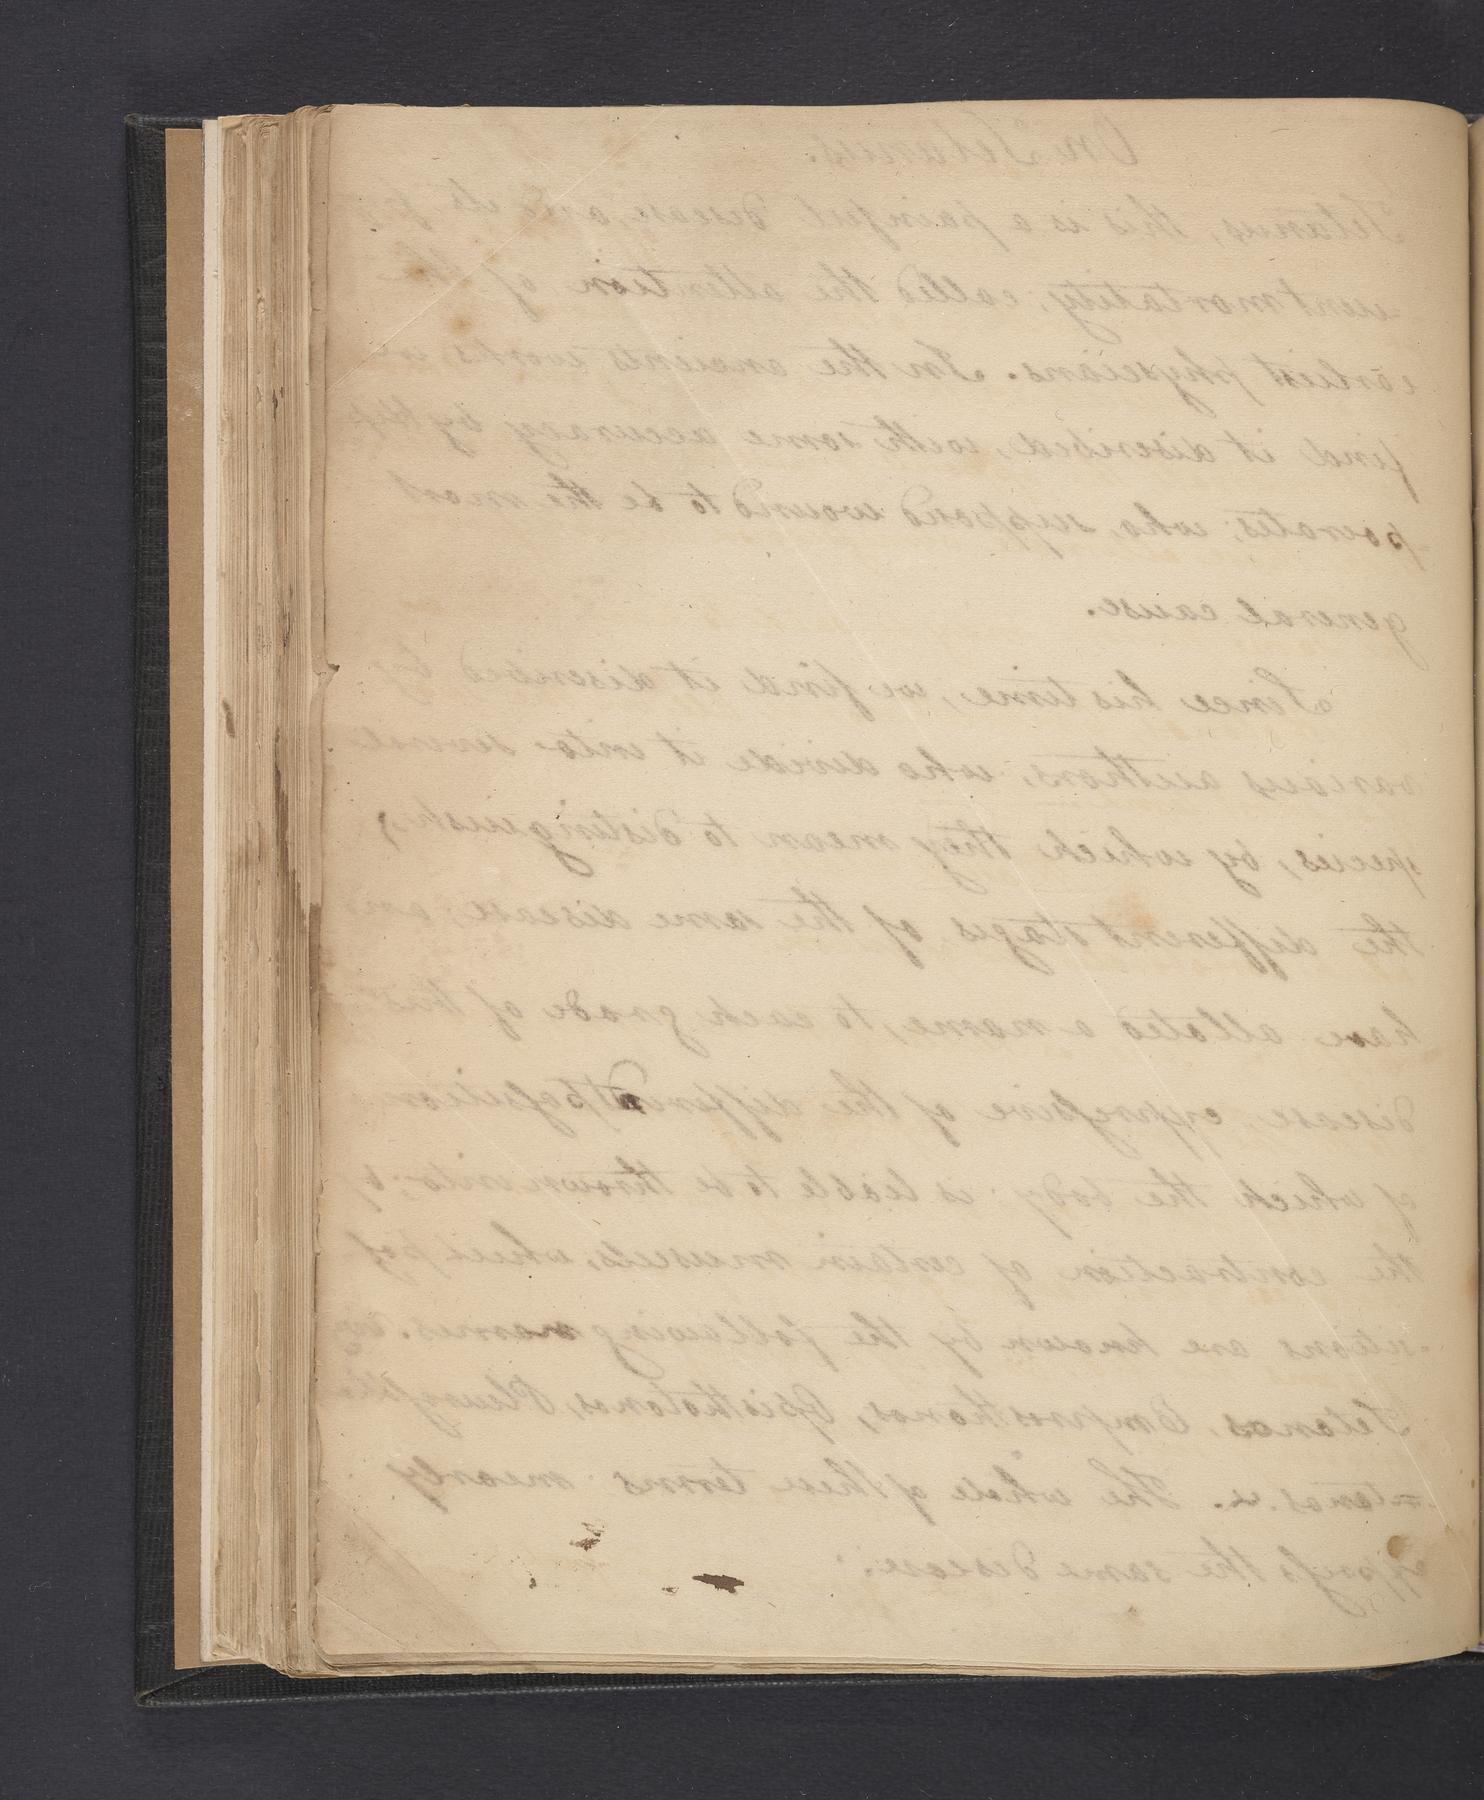 On Tetanus.
Tetanus, this is a painful disease, and its fre
-uent mortality, called the attention of the
earliest physicians. In the ancients works we
find it discribed, with some accuracy by Hip
-pocrates, who, supposd wound to be the most
general cause.
Since his time, we find it discribed by
various authors, who divide it into several
species, by which they mean to distinguish,
the different stages of the same disease, and
have alloted a name, to each grade of this
disease, expressive of the different position
of which the body is leable to be thrown into, by
the contraction of certain muscels, which pos
-sitions are known by the following names.
Tetanos, Emprosthonos, Opisthotonos, Pleurostho
=tonos. &. The whole of these terms mearly
express the same disease.